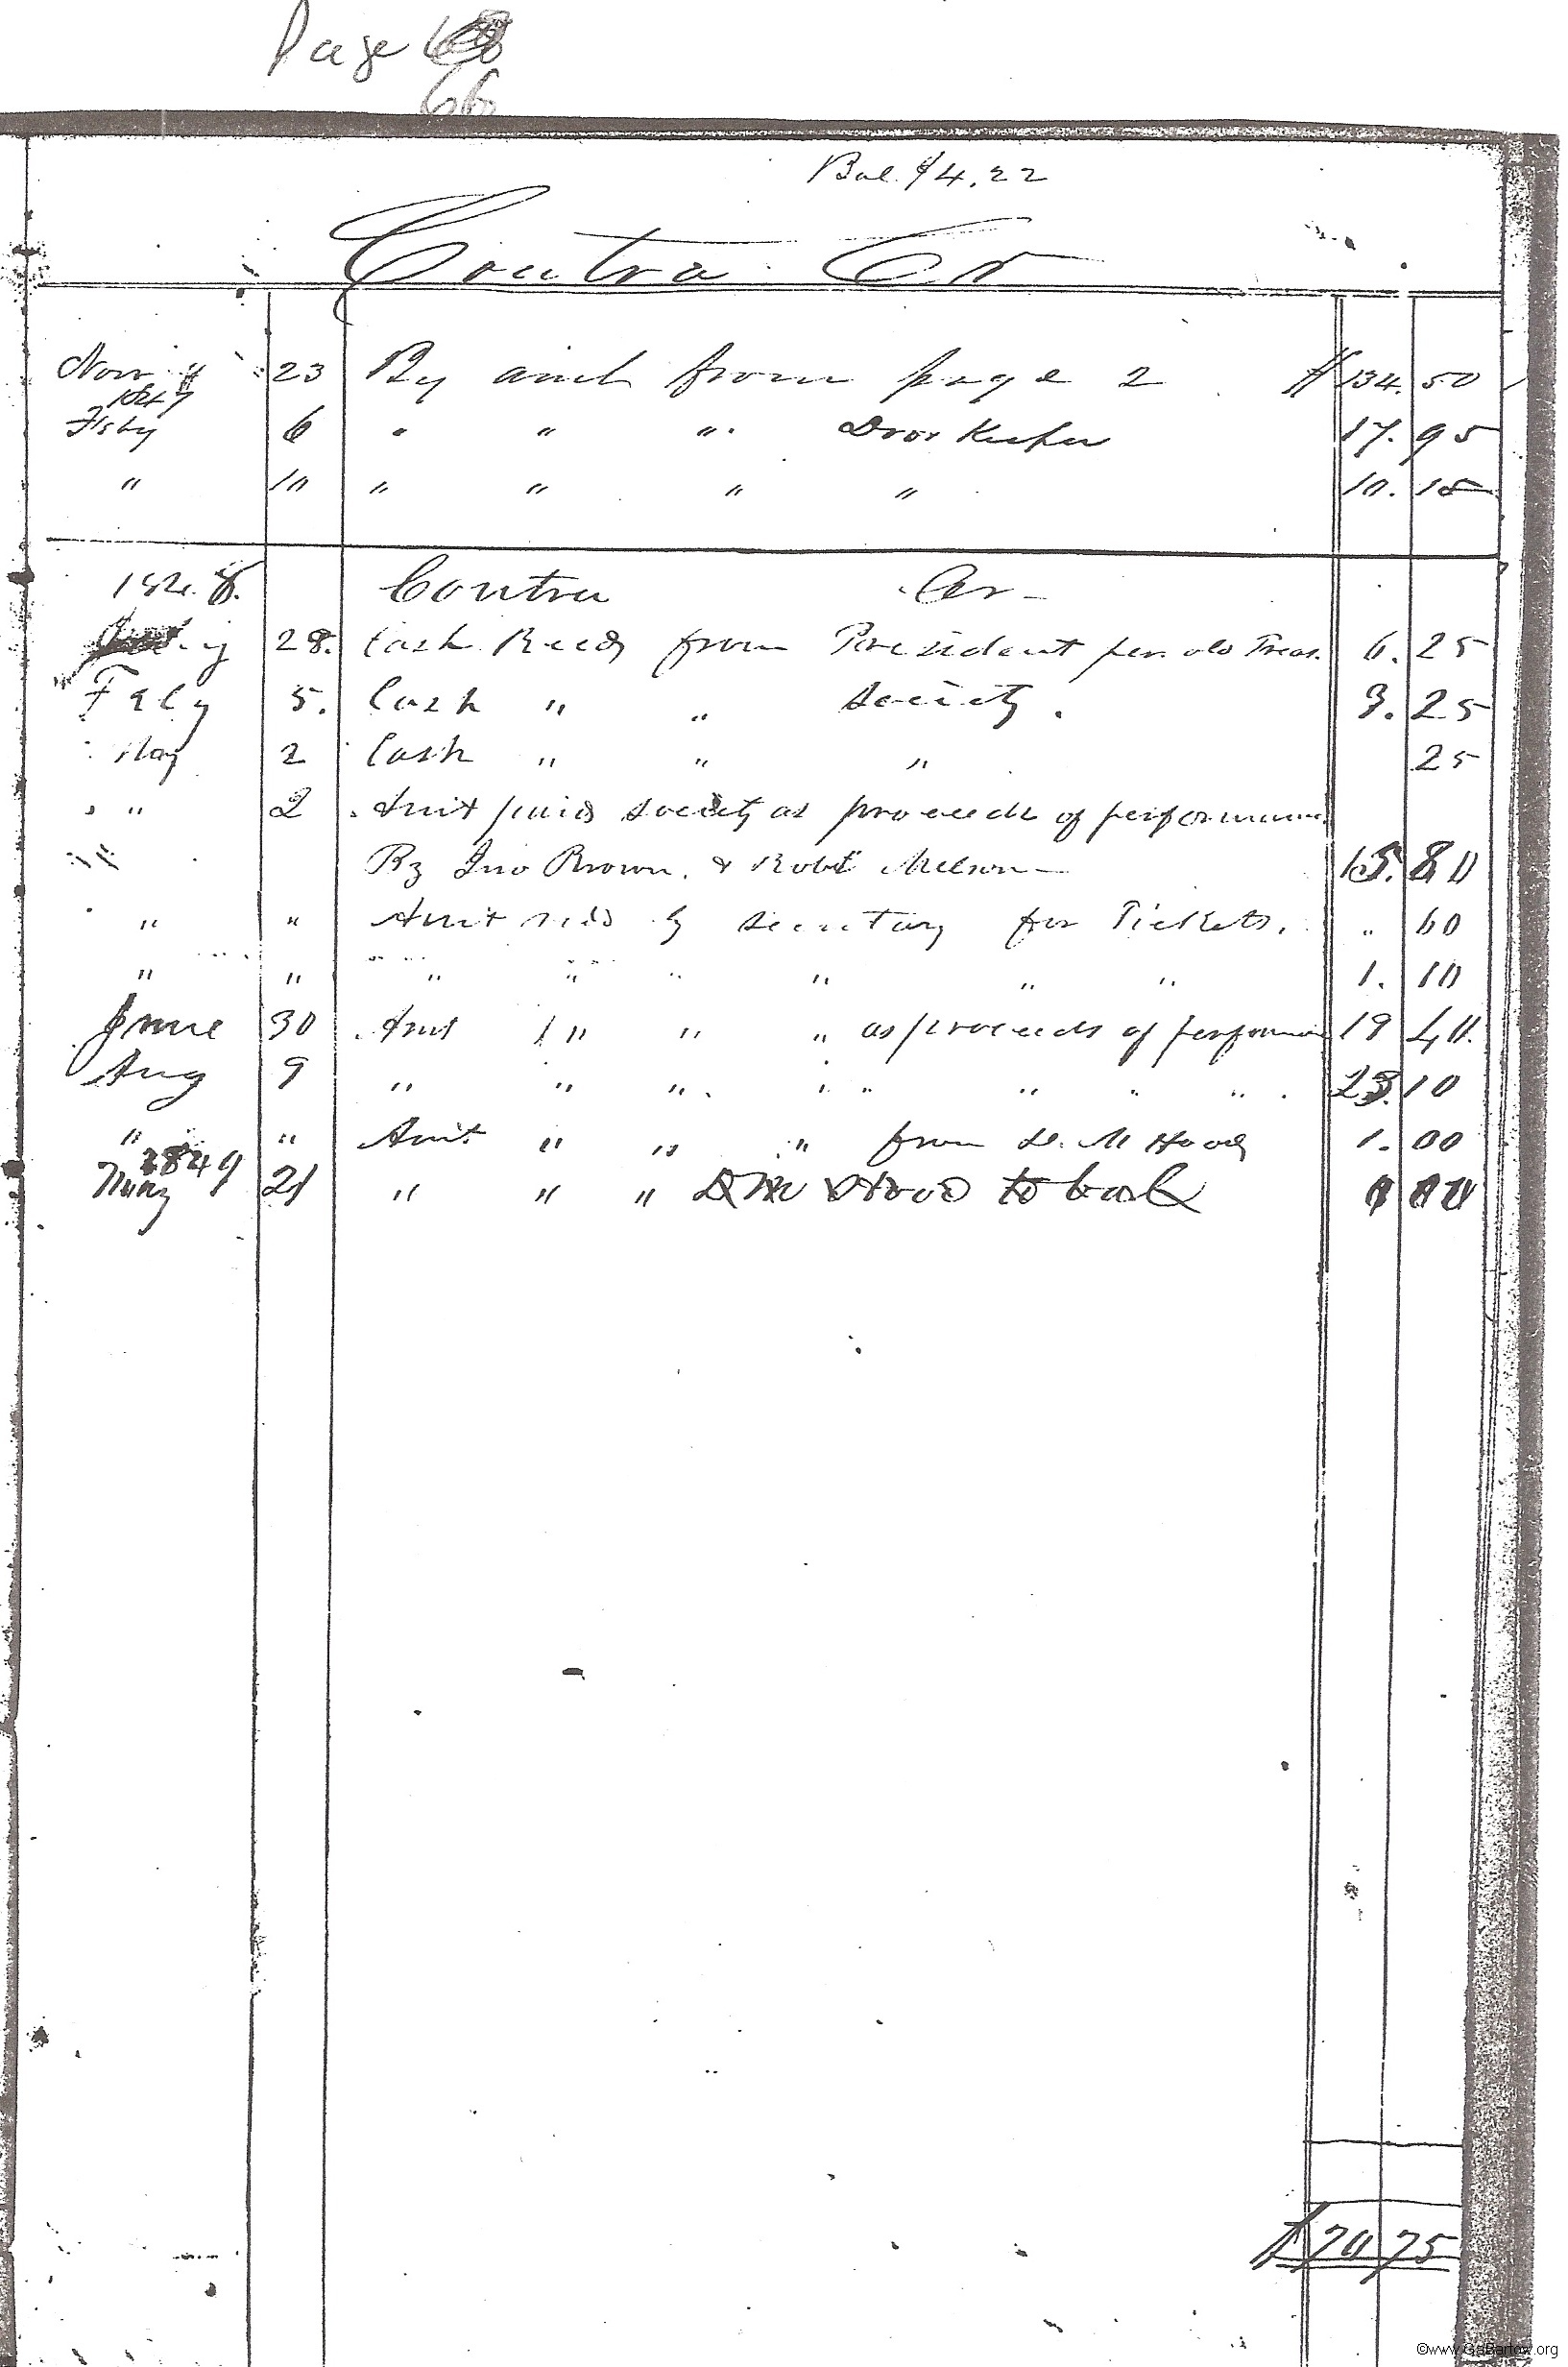 Page
66
Bal. $4.22
Contra Cr
Nov " 23 By amt from page 2 $134.50
1847
Feby 6 " " " Door Keeper 17.95
" 10 " " " " 10.15
1848. Contra Cr
28. Cash Recd from President per old Treas. 6.25
Feby 5. Cash " " Society. 3.25
May 2 Cash " " " 25
" 2 Amt paid society as proceeds of performance
By Jno Brown & Robt Milson 15.80
" " Amt recd by secretary for Tickets. " 60
" " " " " " " " 1.10
June 30 Amt " " " as proceeds of performan 19 40
Aug 9 " " " " " " " " 23.10
" " Amt " " " from D. M Hood 1.00
1849
21 " " " D M Hood to book
$70 75
©www.GaBartow.org